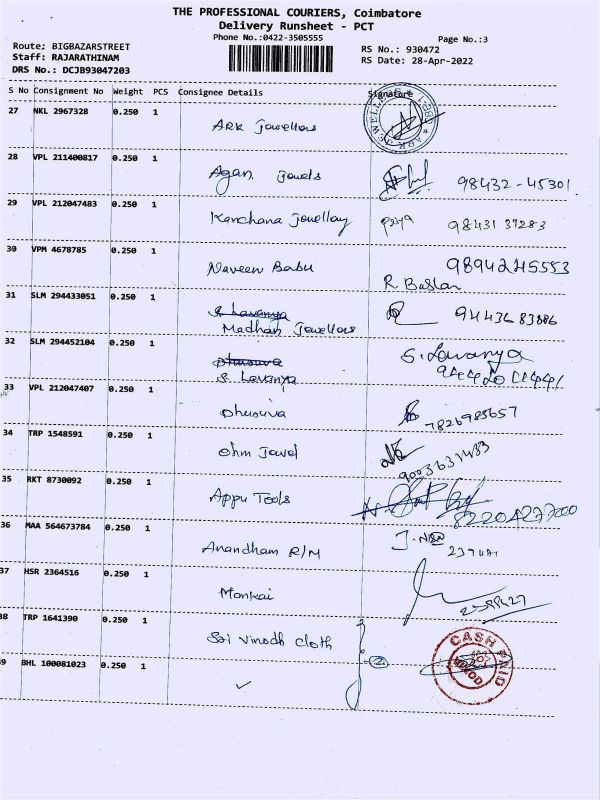 THE PROFESSIONAL COURIERS, Coimbatore
Delivery Runsheet - PCT
Phone No.:0422-3505555
Page No.:3
Route; BIGBAZARSTREET
RS No.: 930472
Staff: RAJARATHINAM
RS Date: 28-Apr-2022
DRS No.: DCJB93047203
S No Consignment No Weight PCS Consignee Details Signature
27 NKL 2967328 0.250 1
ARK Jowellors
28 VPL 211400817 0.250 1
Agan Jowels 98432-45301
29 VPL 212047483 0.250 1
Kanchana Jowellary Priya 98431 37283
30 VPM 4678785 0.250 1
Naveen Babu 9894245553
R Baslar
31 SLM 294433051 0.250 1
S. Lavanya
Madhan Jowellors
32 SLM 294452104 0.250 1
S. Lavanya
S. Lavanya
33 VPL 212047407 0.250 1
7826985657
34 TRP 1548591 0.250 1
Ohm Jowel 9003637483
35 RKT 8730092 0.250 1
Appu Tools
36 MAA 564673784 0.250 1
Anandham R/M
37 HSR 2364516 0.250 1
38 TRP 1641390 0.250 1
Sai Vinodh Cloth
39 BHL 100081023 0.250 1
2
CASH PAID